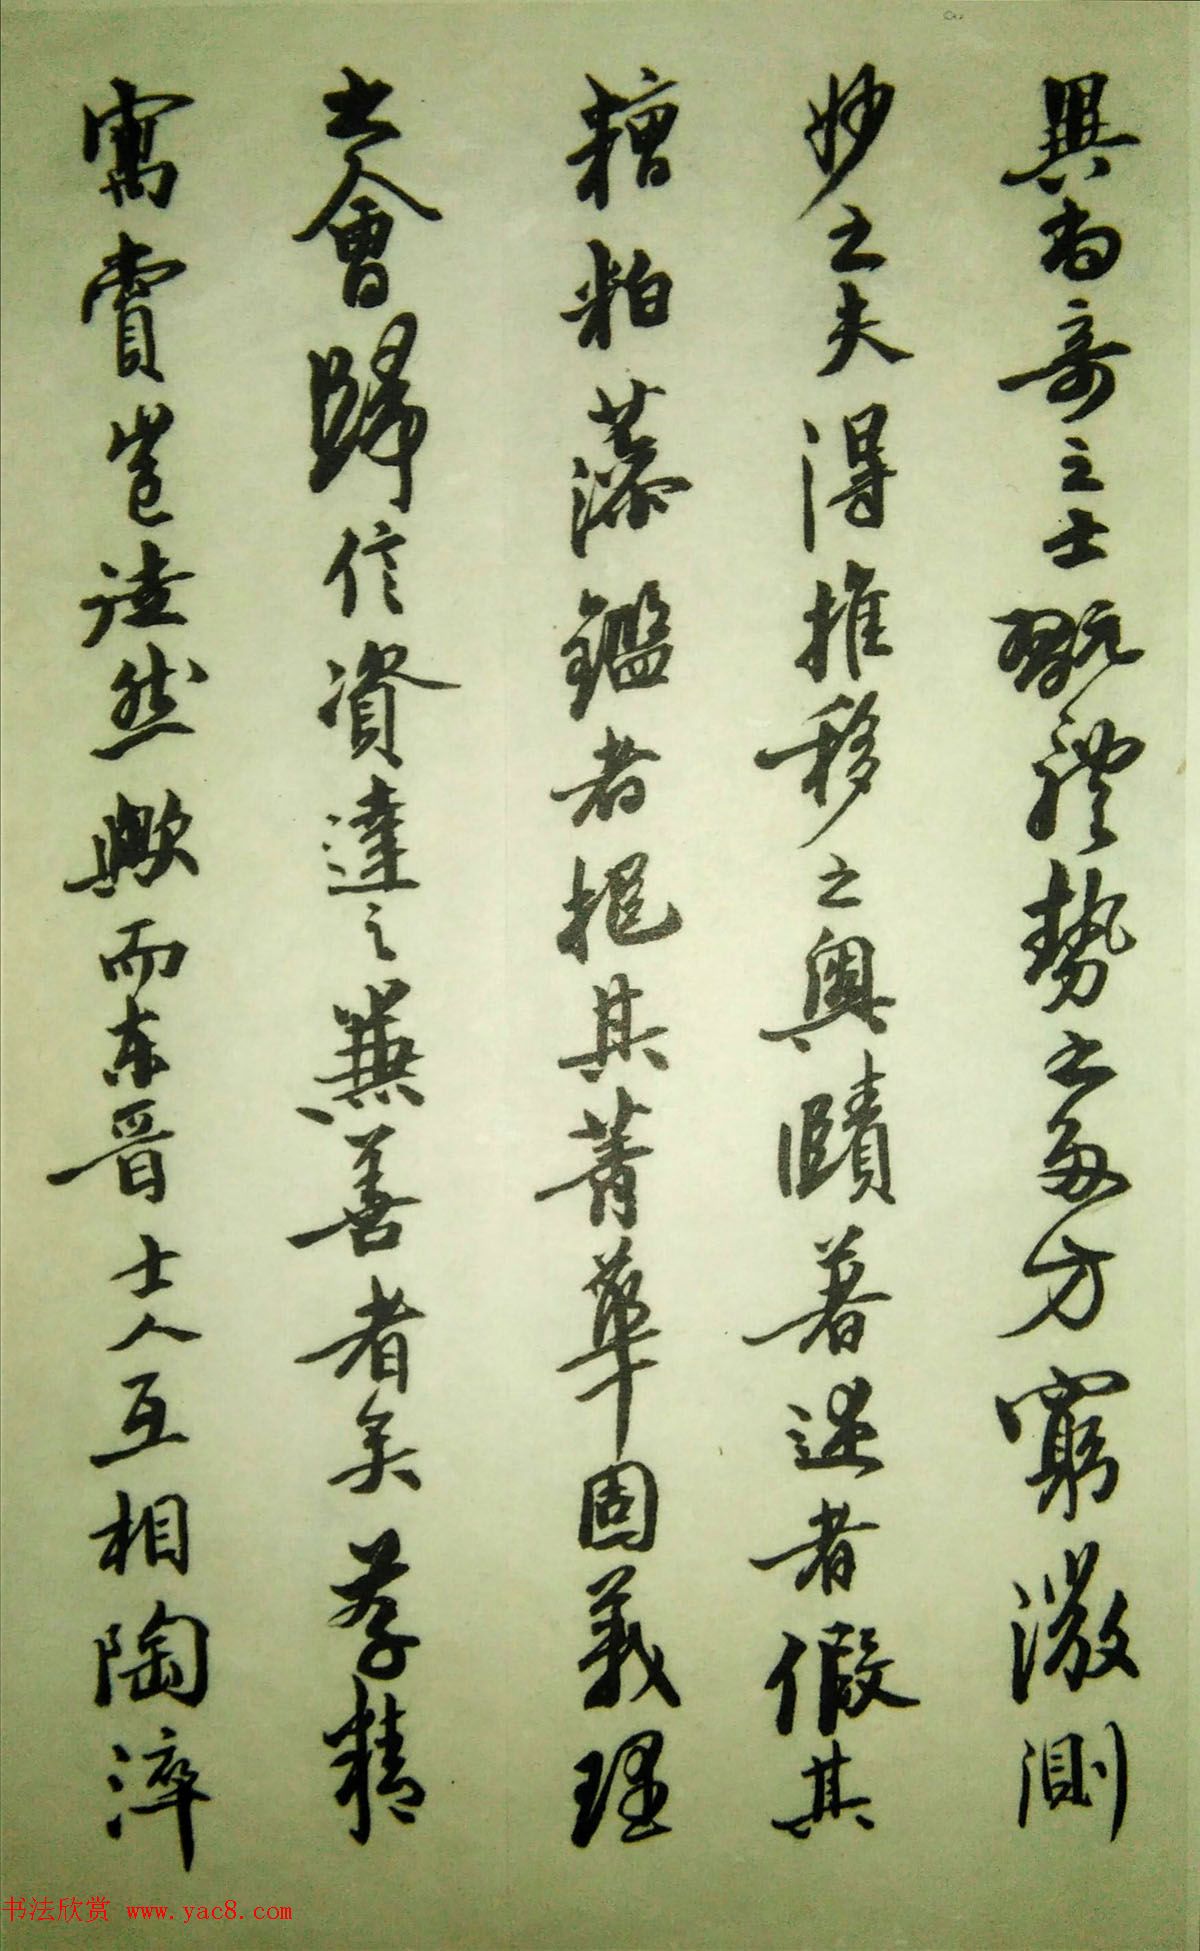 異尚奇之士翫體勢之多方窮微測
妙之夫得推移之奧賾著述者假其
糟粕藻鑑者挹其菁華固義理
之會歸信資達之兼善者矣存精
寓賞豈徒然歟而东晋士人互相陶淬
书法欣赏 www.yac8.com